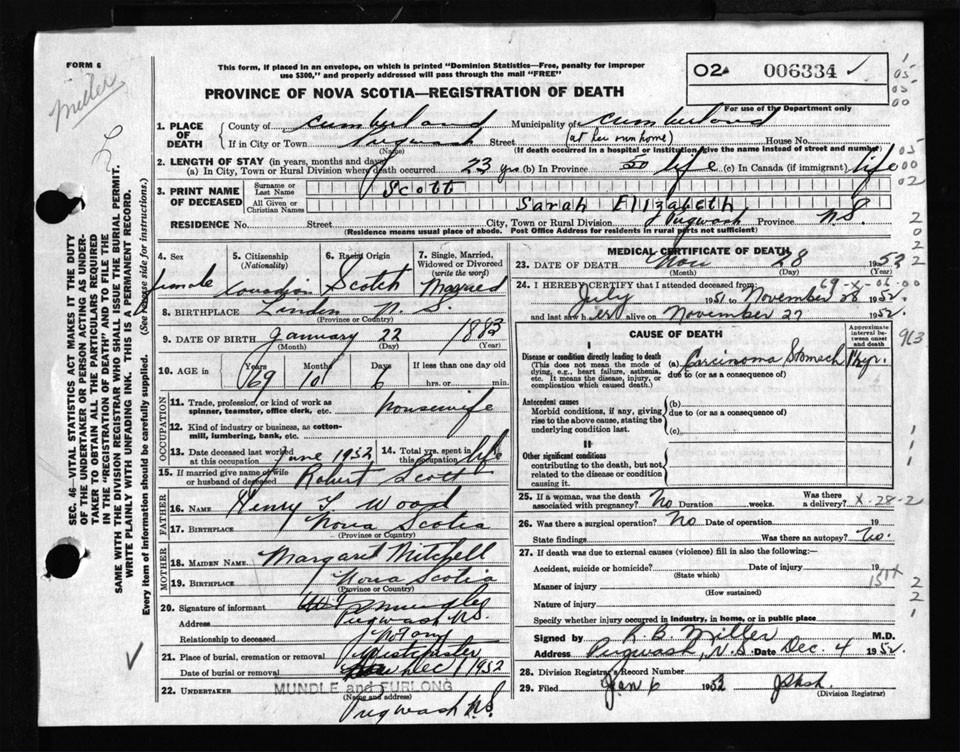 FORM 6
Miller
This form, if placed in an envelope, on which is printed "Dominion Statistics—Free, penalty for improper
use $300," and properly addressed will pass through the mail "FREE"
02 006334 ✓
PROVINCE OF NOVA SCOTIA—REGISTRATION OF DEATH
For use of the Department only
1. PLACE OF DEATH
County of Cumberland Municipality of Cumberland
If in City or Town Pugwash Street (at her own home) House No.
(Name) (If death occurred in a hospital or institution, give the name instead of street and number)
2. LENGTH OF STAY (in years, months and days)
(a) In City, Town or Rural Division where death occurred 23 yrs (b) In Province life (c) In Canada (if immigrant) life
3. PRINT NAME OF DECEASED
Surname or Last Name Scott
All Given or Christian Names Sarah Elizabeth
RESIDENCE No. Street City, Town or Rural Division Pugwash Province N.S.
(Residence means usual place of abode. Post Office Address for residents in rural parts not sufficient)
SEC. 46—VITAL STATISTICS ACT MAKES IT THE DUTY
OF THE UNDERTAKER OR PERSON ACTING AS UNDER-
TAKER TO OBTAIN ALL THE PARTICULARS REQUIRED
IN THE "REGISTRATION OF DEATH" AND TO FILE THE
SAME WITH THE DIVISION REGISTRAR WHO SHALL ISSUE THE BURIAL PERMIT.
WRITE PLAINLY WITH UNFADING INK. THIS IS A PERMANENT RECORD.
Every item of information should be carefully supplied. (See reverse side for instructions.)
4. Sex 5. Citizenship (Nationality) 6. Racial Origin 7. Single, Married, Widowed or Divorced (write the word)
female Canadian Scotch Married
8. BIRTHPLACE Linden N.S.
(Province or Country)
9. DATE OF BIRTH January 22 1883
(Month) (Day) (Year)
10. AGE in Years Months Days If less than one day old
69 10 6 hrs. or min.
OCCUPATION
11. Trade, profession, or kind of work as spinner, teamster, office clerk, etc. housewife
12. Kind of industry or business, as cotton-mill, lumbering, bank, etc.
13. Date deceased last worked at this occupation June 1952 14. Total yrs. spent in this occupation life
15. If married give name of wife or husband of deceased Robert Scott
FATHER
16. NAME Henry Wood
17. BIRTHPLACE Nova Scotia
(Province or Country)
MOTHER
18. MAIDEN NAME Margaret Mitchell
19. BIRTHPLACE Nova Scotia
(Province or Country)
20. Signature of informant
Address Pugwash N.S.
Relationship to deceased
21. Place of burial, cremation or removal
Date of burial or removal Dec 1 1952
22. UNDERTAKER MUNDLE and FURLONG
(Name and address)
Pugwash N.S.
MEDICAL CERTIFICATE OF DEATH
23. DATE OF DEATH Nov 28 1952
(Month) (Day) (Year)
24. I HEREBY CERTIFY that I attended deceased from
July 1951 to November 28 1952.
and last saw her alive on November 27 1952.
CAUSE OF DEATH
Approximate interval between onset and death
I
Disease or condition directly leading to death
(This does not mean the mode of dying, e.g., heart failure, asthenia, etc. It means the disease, injury, or complication which caused death.)
(a) Carcinoma Stomach
due to (or as a consequence of)
Antecedent causes
Morbid conditions, if any, giving rise to the above cause, stating the underlying condition last.
(b)
due to (or as a consequence of)
(c)
II
Other significant conditions
contributing to the death, but not related to the disease or condition causing it.
25. If a woman, was the death associated with pregnancy? No Duration weeks. Was there a delivery? X-28-2
26. Was there a surgical operation? No Date of operation 19
State findings Was there an autopsy? No.
27. If death was due to external causes (violence) fill in also the following:—
Accident, suicide or homicide? Date of injury 19
(State which)
Manner of injury
(How sustained)
Nature of injury
Specify whether injury occurred in industry, in home, or in public place
Signed by R. B. Miller M.D.
Address Pugwash, N.S. Date Dec. 4 1952.
28. Division Registrar's Record Number
29. Filed Jan 6 1953
(Division Registrar)